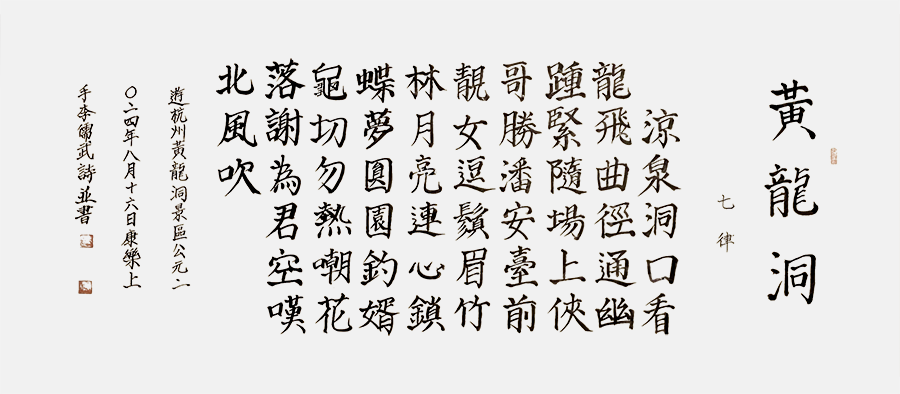 黃龍洞
七律
涼泉洞口看
龍飛曲徑通幽
踵緊隨場上俠
哥勝潘安臺前
靚女逗鬚眉竹
林月亮連心鎖
蝶夢圓園釣婿
龜切勿熱嘲花
落謝為君空嘆
北風吹
遊杭州黃龍洞景區公元二
〇二四年八月十六日康樂上
手李儒武詩並書